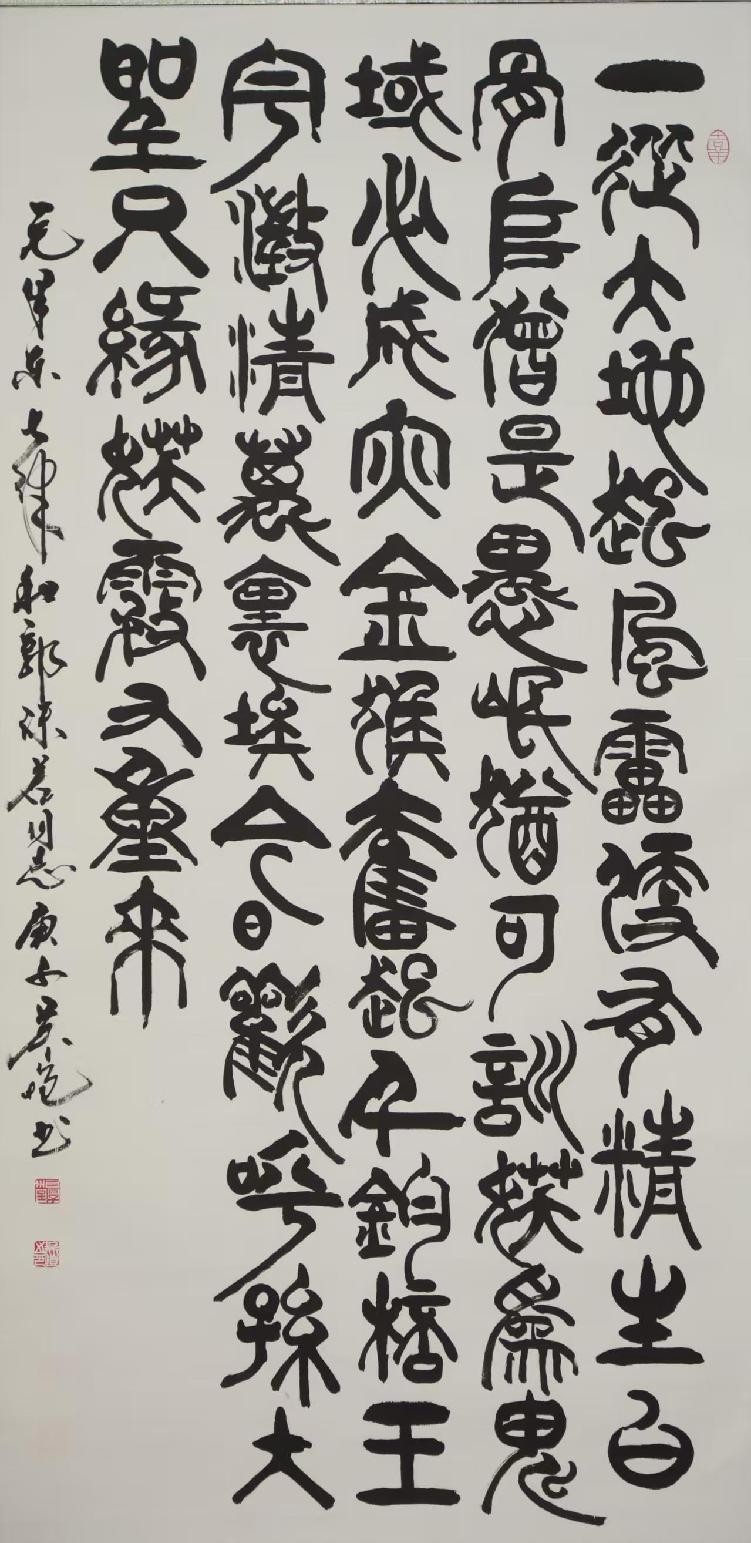 一從大地起風雷便有精生白
骨𠂤僧是愚氓猶可訓妖為鬼
域必成灾金猴奮起千鈞棓玉
宇澂清萬裏埃今日歡呼孫大
聖只緣妖霧又重來
毛泽东七律和郭沫若同志庚子吴书